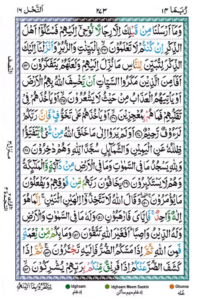 رُبَمَا ١٤
٢٤٣
النَّحْل ١٦
وَمَآ اَرْسَلْنَا مِنْ قَبْلِكَ اِلَّا رِجَالًا نُّوْحِيْٓ اِلَيْهِمْ فَسْـَٔلُوْٓا اَهْلَ
الذِّكْرِ اِنْ كُنْتُمْ لَا تَعْلَمُوْنَ ۝ بِالْبَيِّنٰتِ وَالزُّبُرِ ؕ وَاَنْزَلْنَآ اِلَيْكَ
الذِّكْرَ لِتُبَيِّنَ لِلنَّاسِ مَا نُزِّلَ اِلَيْهِمْ وَلَعَلَّهُمْ يَتَفَكَّرُوْنَ ۝
اَفَاَمِنَ الَّذِيْنَ مَكَرُوا السَّيِّاٰتِ اَنْ يَّخْسِفَ اللّٰهُ بِهِمُ الْاَرْضَ
اَوْ يَاْتِيَهُمُ الْعَذَابُ مِنْ حَيْثُ لَا يَشْعُرُوْنَ ۝ اَوْ يَاْخُذَهُمْ فِيْ
تَقَلُّبِهِمْ فَمَا هُمْ بِمُعْجِزِيْنَ ۝ اَوْ يَاْخُذَهُمْ عَلٰى تَخَوُّفٍ ؕ فَاِنَّ رَبَّكُمْ
لَرَءُوْفٌ رَّحِيْمٌ ۝ اَوَلَمْ يَرَوْا اِلٰى مَا خَلَقَ اللّٰهُ مِنْ شَيْءٍ يَّتَفَيَّؤُا
ظِلٰلُهٗ عَنِ الْيَمِيْنِ وَالشَّمَآئِلِ سُجَّدًا لِّلّٰهِ وَهُمْ دٰخِرُوْنَ ۝
وَلِلّٰهِ يَسْجُدُ مَا فِي السَّمٰوٰتِ وَمَا فِي الْاَرْضِ مِنْ دَآبَّةٍ وَّالْمَلٰٓئِكَةُ
وَهُمْ لَا يَسْتَكْبِرُوْنَ ۝ يَخَافُوْنَ رَبَّهُمْ مِّنْ فَوْقِهِمْ وَيَفْعَلُوْنَ
مَا يُؤْمَرُوْنَ ۝ وَقَالَ اللّٰهُ لَا تَتَّخِذُوْٓا اِلٰهَيْنِ اثْنَيْنِ ۚ اِنَّمَا هُوَ
اِلٰهٌ وَّاحِدٌ ۚ فَاِيَّايَ فَارْهَبُوْنِ ۝ وَلَهٗ مَا فِي السَّمٰوٰتِ وَالْاَرْضِ
وَلَهُ الدِّيْنُ وَاصِبًا ؕ اَفَغَيْرَ اللّٰهِ تَتَّقُوْنَ ۝ وَمَا بِكُمْ مِّنْ نِّعْمَةٍ
فَمِنَ اللّٰهِ ثُمَّ اِذَا مَسَّكُمُ الضُّرُّ فَاِلَيْهِ تَجْـَٔرُوْنَ ۝ ثُمَّ اِذَا
كَشَفَ الضُّرَّ عَنْكُمْ اِذَا فَرِيْقٌ مِّنْكُمْ بِرَبِّهِمْ يُشْرِكُوْنَ ۝